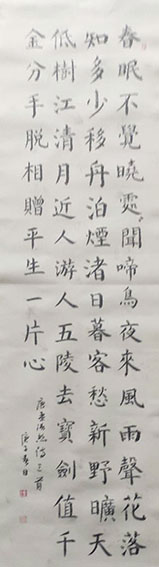 春眠不覺曉處々聞啼鳥夜來風雨聲花落
知多少移舟泊煙渚日暮客愁新野曠天
低樹江清月近人游人五陵去寶劍值千
金分手脫相贈平生一片心
唐孟浩然詩三首
庚子春日